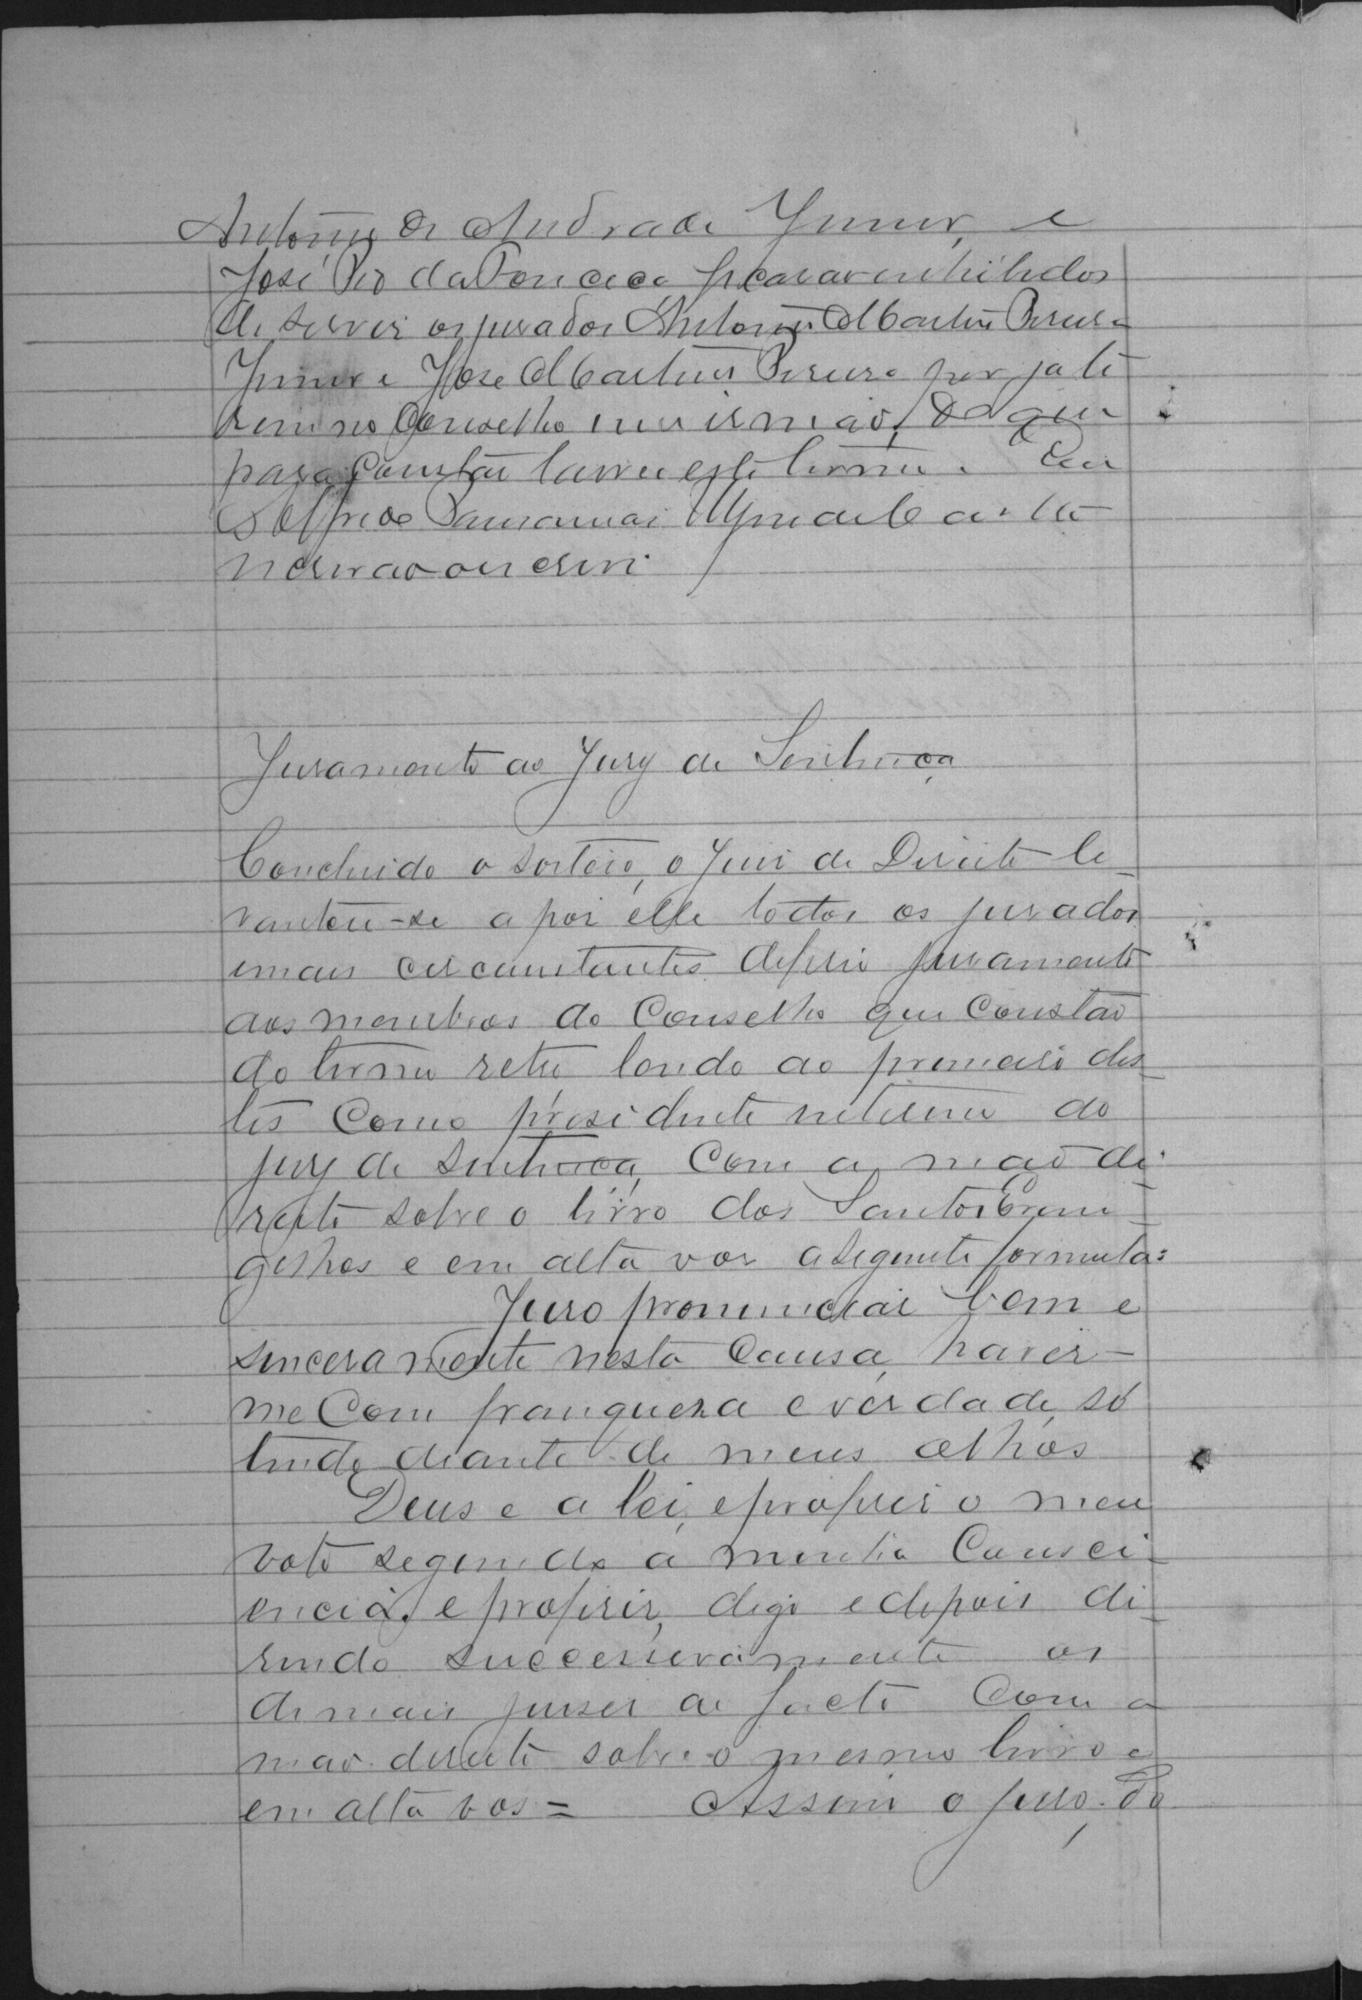 Antonio de Andrade Junior, e
José Pio da Fonceca ficarão inhibidos
de servir os jurados Antonio Martins Pereira
Junior e José Martins Pereira por ja te
rem no Conselho um irmão, do que
para constar lavrei este termo. Eu
Alfredo
escrivão que escrevi
Juramento ao Jury de Sentença
Concluido o sorteio, o Juiz de Direito le-
vantou-se e por elle todos os jurados
e mais circunstantes deferio juramento
aos membros do Conselho que constão
do termo retro lendo ao primeiro des-
tes como presidente interino do
jury de sentença, com a mão di-
reita sobre o livro dos Santos Evan-
gelhos e em alta voz a seguinte formula:
Juro pronunciar bem e
sinceramente nesta causa, haver-
me com franqueza e verdade, só
tendo diante de meus olhos
Deus e a lei, e proferir o meu
voto segundo a minha Consci-
encia. e proferir, digo e depois di-
zendo successivamente os
demais juizes de facto com a
mão direita sobre o mesmo livro e
em alta vos = Assim o juro. Do